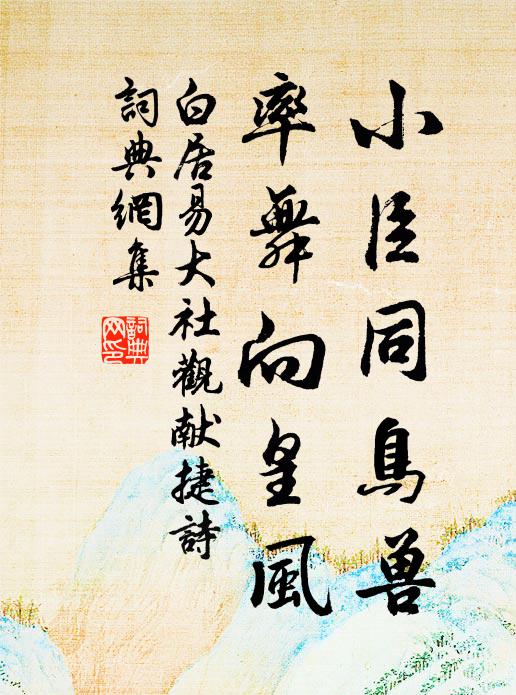 小臣同鳥兽
率舞向皇風
白居易大社觀献捷詩
詞典網集
詞典网印